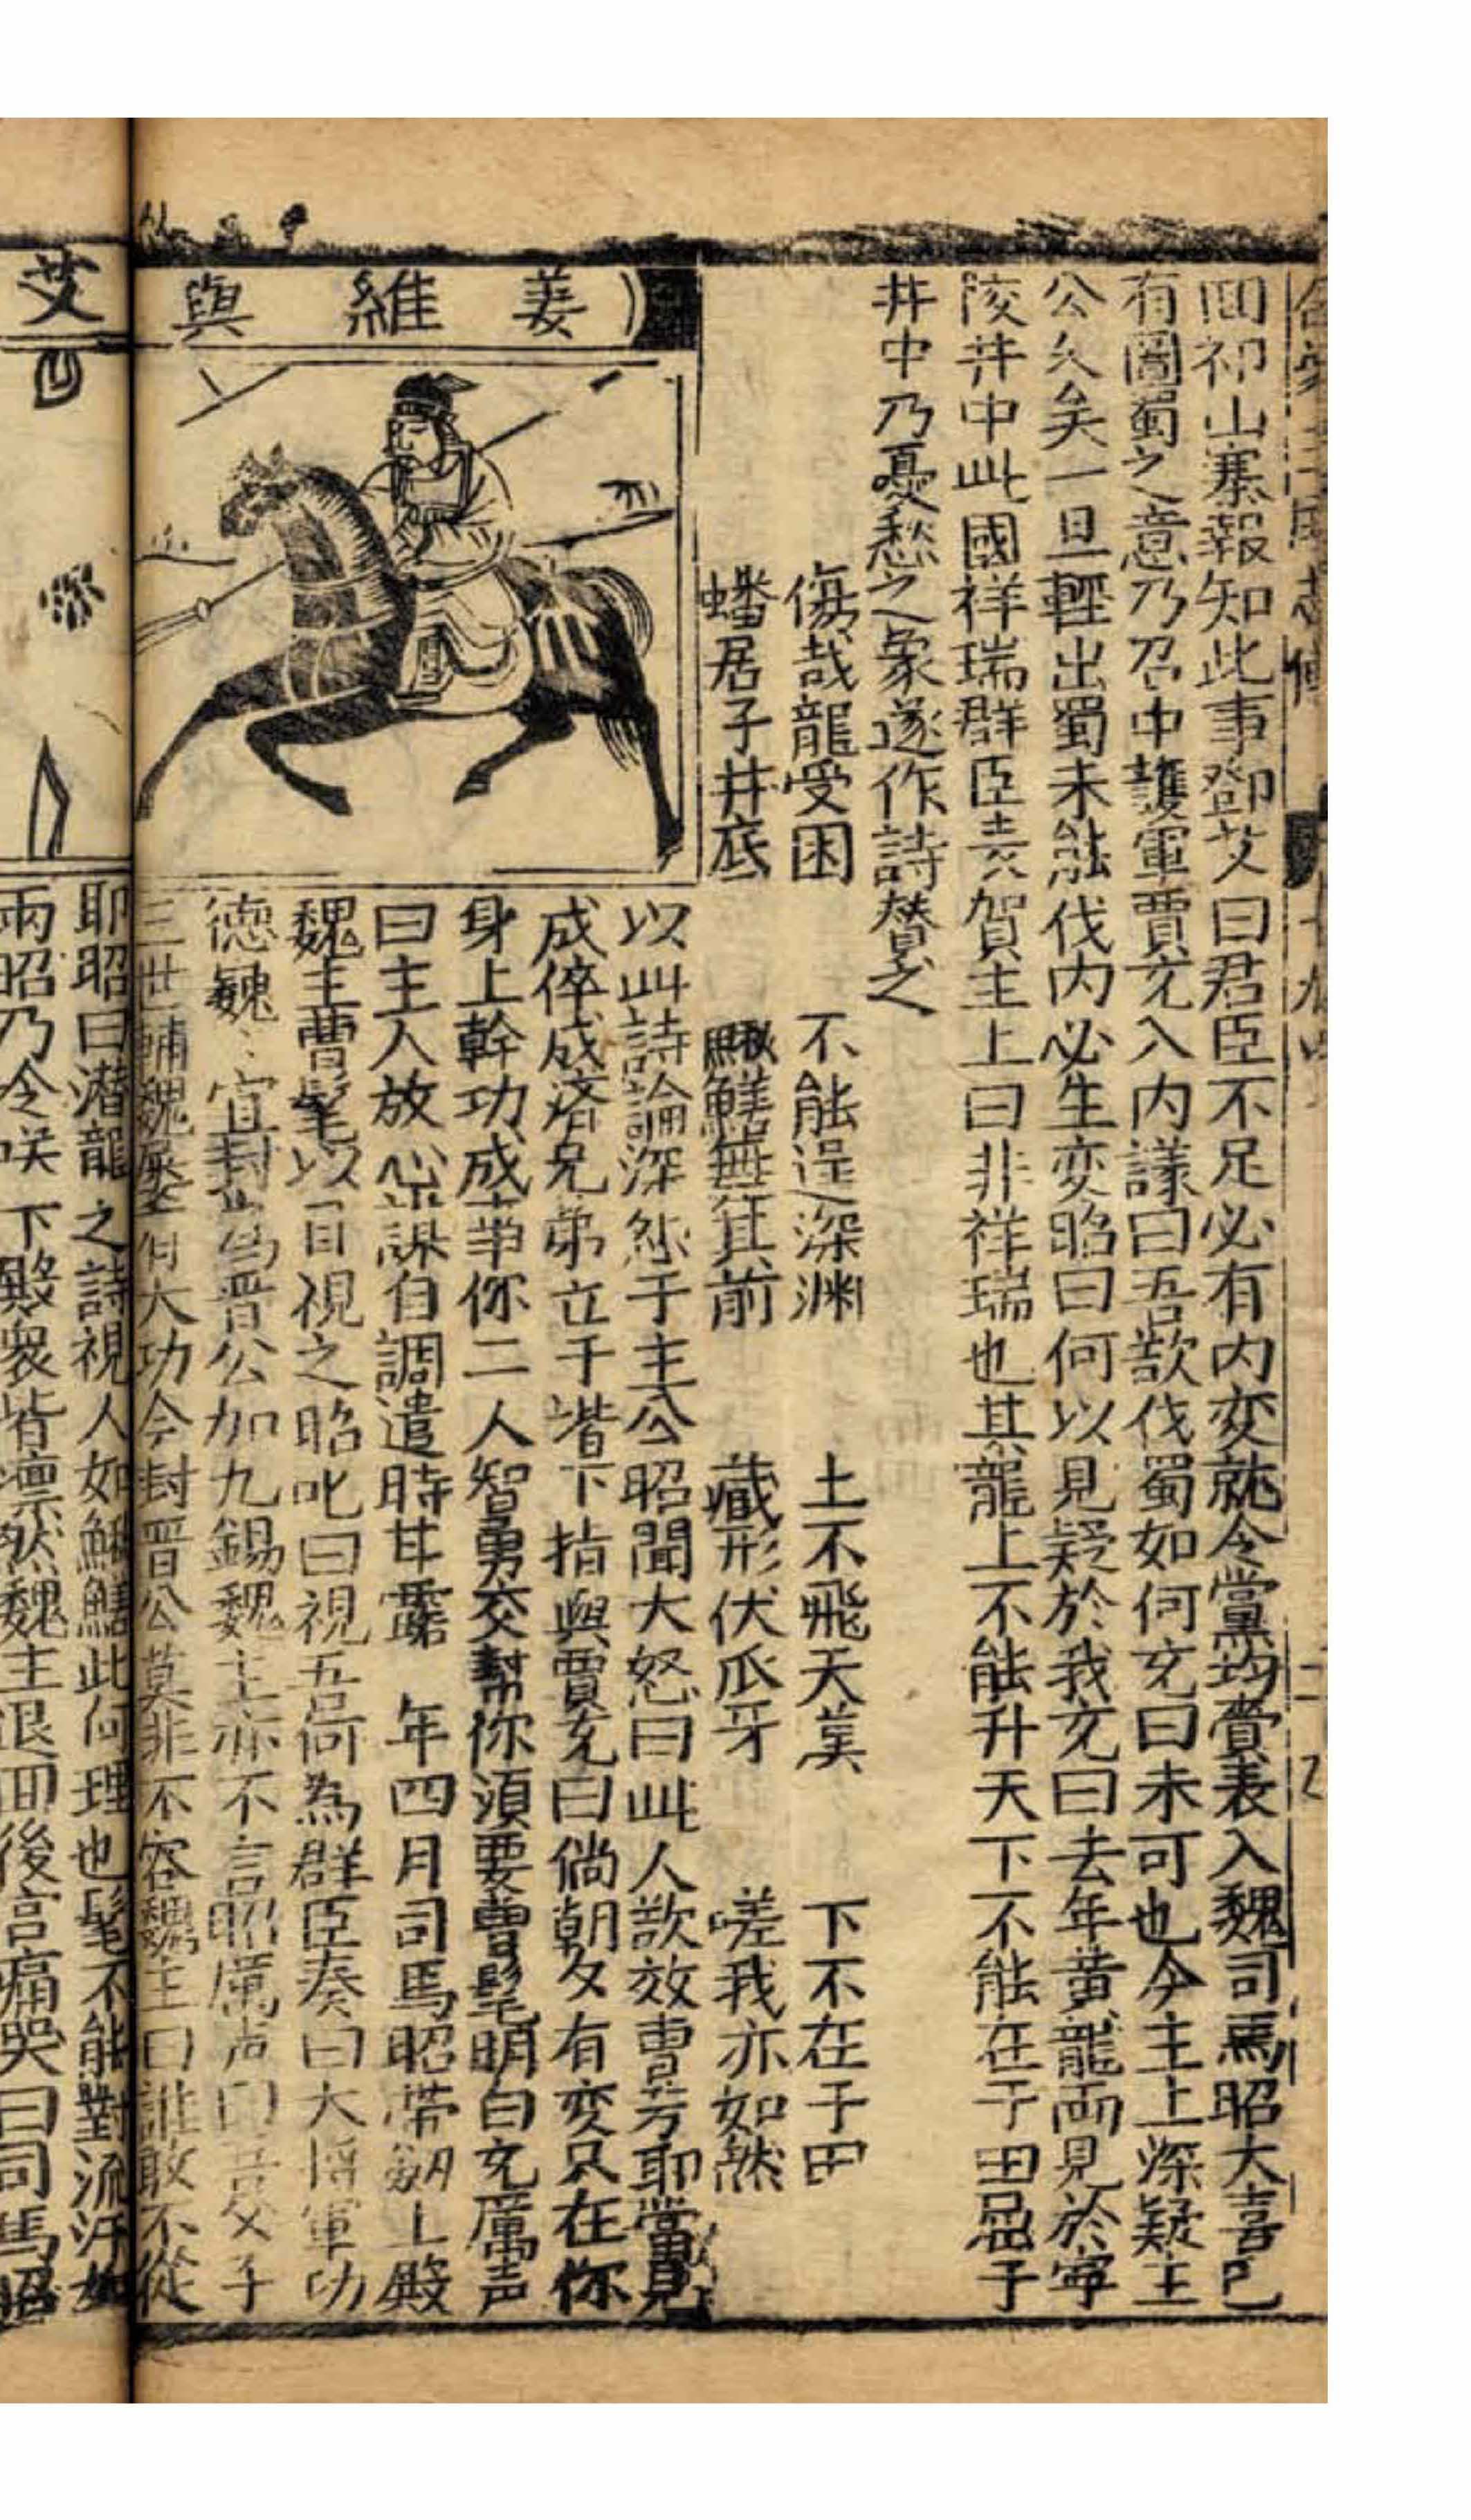 回祁山寨報知此事鄧艾曰君臣不足必有内变就令黨均賷表入魏司馬昭大喜已
有圖蜀之意乃召中護軍賈充入内議曰吾欲伐蜀如何充曰未可也今主上深疑主
公久矣一旦輕出蜀未能伐内必生变昭曰何以見疑於我充曰去年黄龍兩見於寧
陵井中此國祥瑞群臣表賀主上曰非祥瑞也其龍上不能升天下不能在于田屈于
井中乃憂愁之象遂作詩賛之
傷哉龍受困 不能逞深渊 土不飛天漢 下不在于田
蟠居子井底 鰍鱔無其前 藏形伏瓜牙 嗟我亦如然
姜維與
以此詩論深怨于主公昭聞大怒曰此人欲效曹芳耶當見
成倅成济兄弟立于堦下指與賈充曰倘朝夕有变只在你
身上幹功成事你二人智勇交幇你須要曹髦明白充厲声
曰主人放心謀自調遣時甘露 年四月司馬昭帶劒上殿
魏主曹髦以目視之昭叱曰視吾何為群臣奏曰大将軍功
德巍〻宜封為晋公加九錫魏主亦不言昭厲声曰吾父子
三世輔魏屡有大功今封晋公莫非不容魏主曰誰敢不從
艾
耶昭曰潜龍之詩視人如鰍鱔此何理也髦不能對流汗
兩昭乃令咲下殿衆皆凛然魏主退回後宫痛哭曰司馬昭